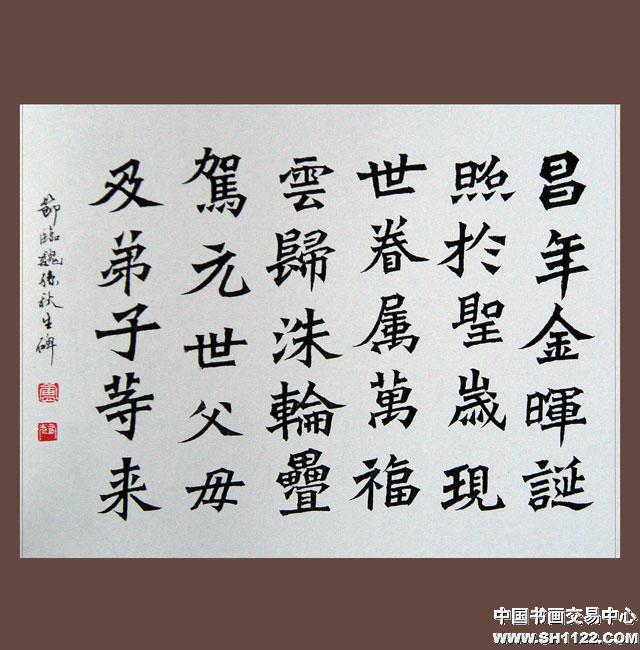 昌年金暉誕
照於聖歲現
世眷属萬福
雲歸洙輪疊
駕元世父母
及弟子等来
節臨魏孫秋生碑
中国书画交易中心
WWW.SH1122.COM